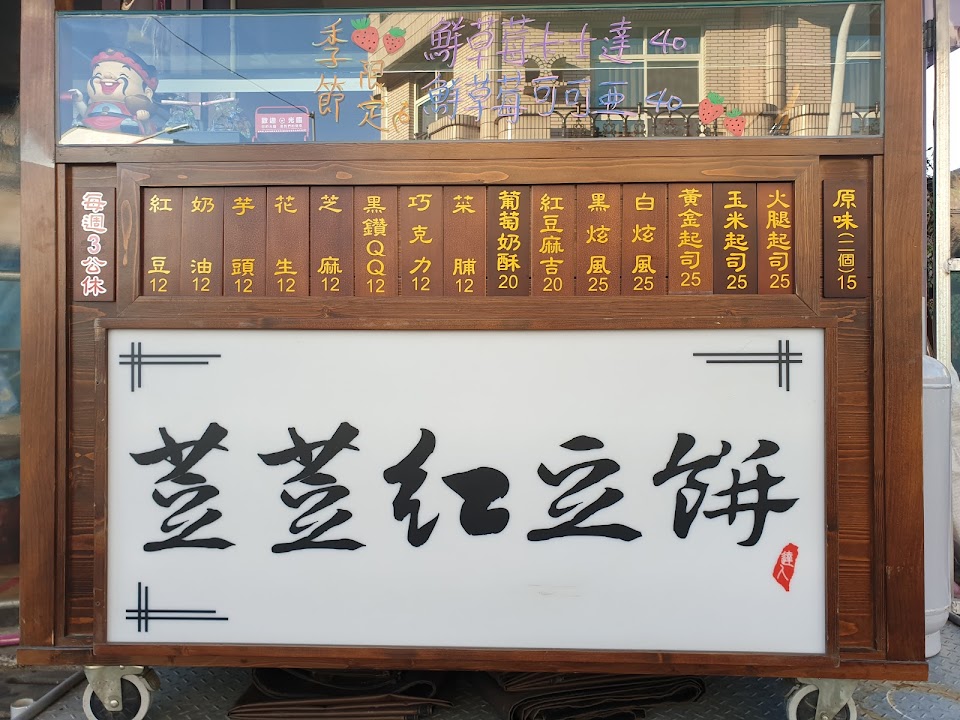 季節限定
鮮草莓卡士達 40
鮮草莓可可亞 40
每週3公休
紅豆 12
奶油 12
芋頭 12
花生 12
芝麻 12
黑鑽QQ 12
巧克力 12
菜脯 12
葡萄奶酥 20
紅豆麻吉 20
黑炫風 25
白炫風 25
黃金起司 25
玉米起司 25
火腿起司 25
原味(二個) 15
荳荳紅豆餅
達人